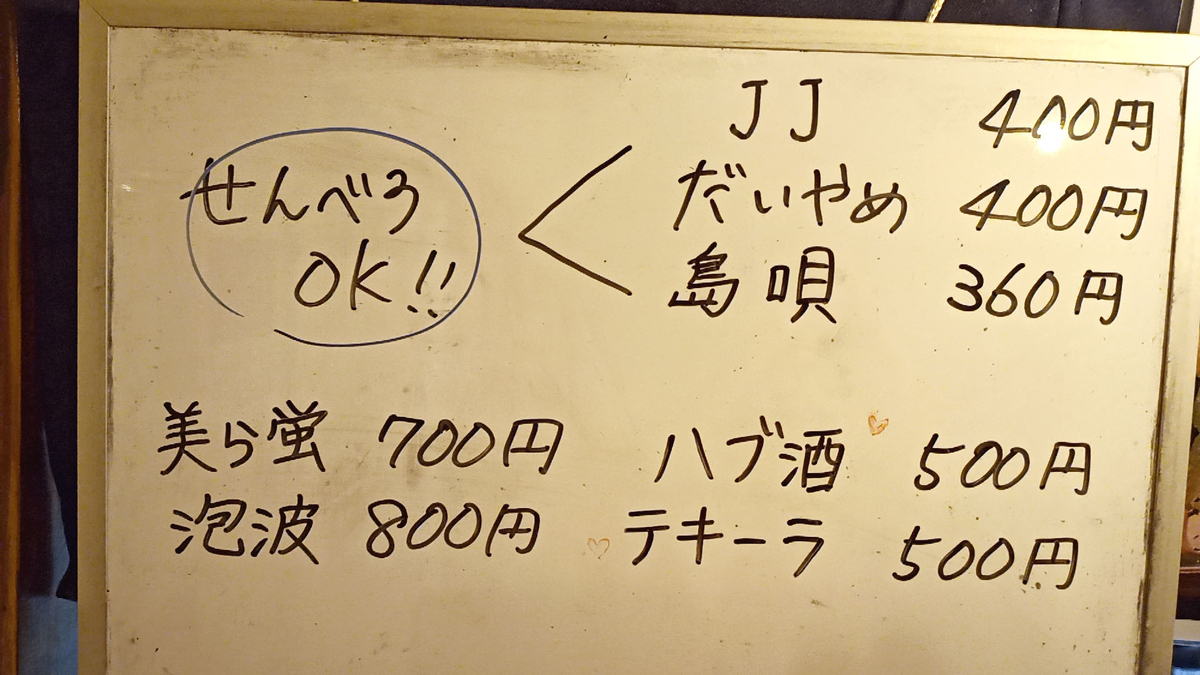 せんべろ
OK!!
JJ 400円
だいやめ 400円
島唄 360円
美ら蛍 700円 ハブ酒 500円
泡波 800円 テキーラ 500円